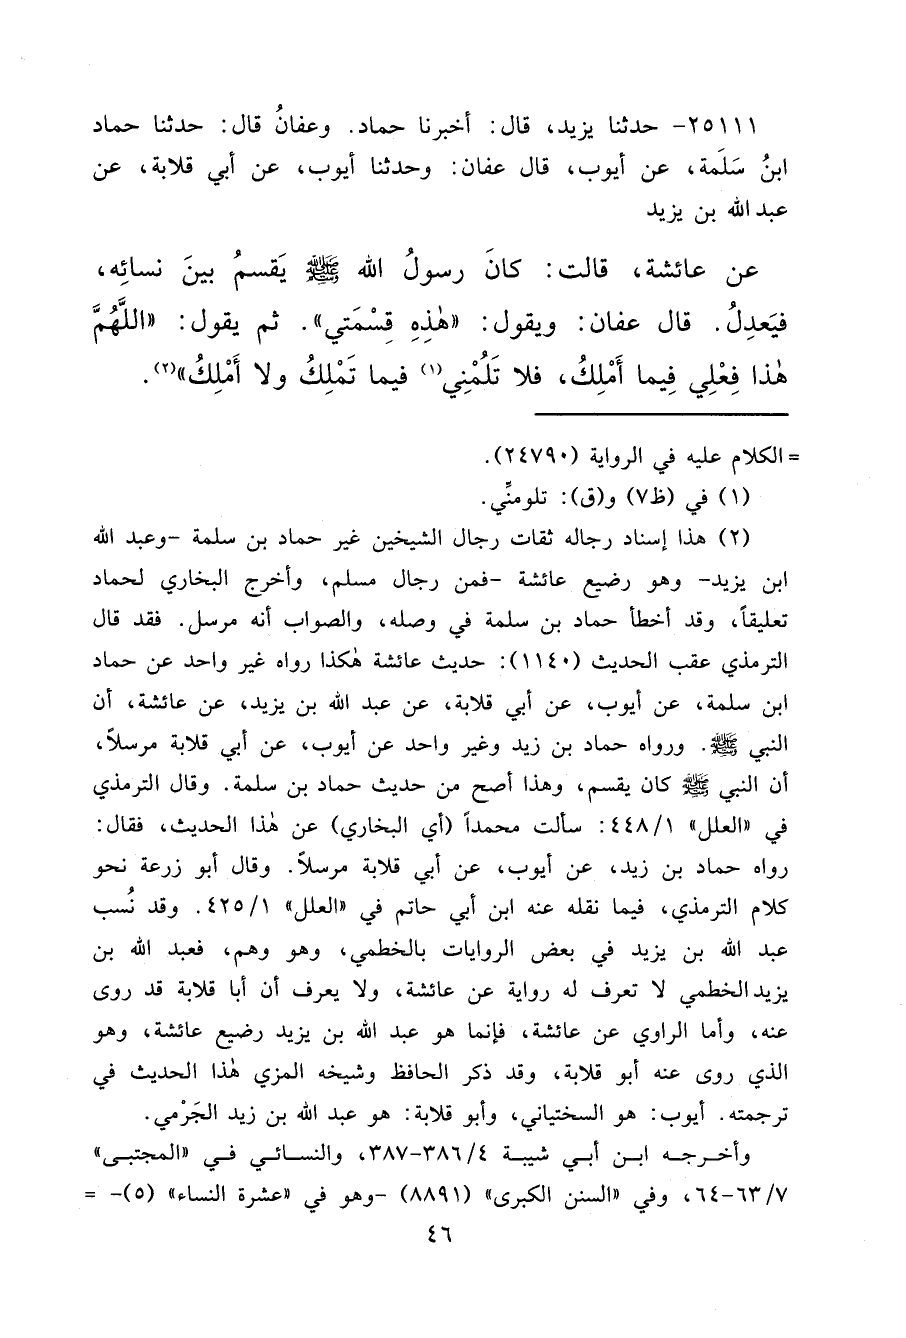 ٢٥١١١- حدثنا يزيد، قال: أخبرنا حماد. وعفانُ قال: حدثنا حماد
ابنُ سَلَمة، عن أيوب، قال عفان: وحدثنا أيوب، عن أبي قلابة، عن
عبد الله بن يزيد
عن عائشة، قالت: كانَ رسولُ الله ﷺ يَقسمُ بينَ نسائِه،
فيَعدِلُ. قال عفان: ويقول: «هٰذِهِ قِسْمَتي». ثم يقول: «اللَّهُمَّ
هٰذا فِعْلِي فِيما أَمْلِكُ، فلا تَلُمْنِي(١) فيما تَمْلِكُ ولا أَمْلِكُ»(٢).
= الكلام عليه في الرواية (٢٤٧٩٠).
(١) في (ظ٧) و(ق): تلومنِّي.
(٢) هذا إسناد رجاله ثقات رجال الشيخين غير حماد بن سلمة -وعبد الله
ابن يزيد- وهو رضيع عائشة -فمن رجال مسلم، وأخرج البخاري لحماد
تعليقاً، وقد أخطأ حماد بن سلمة في وصله، والصواب أنه مرسل. فقد قال
الترمذي عقب الحديث (١١٤٠): حديث عائشة هٰكذا رواه غير واحد عن حماد
ابن سلمة، عن أيوب، عن أبي قلابة، عن عبد الله بن يزيد، عن عائشة، أن
النبي ﷺ. ورواه حماد بن زيد وغير واحد عن أيوب، عن أبي قلابة مرسلاً،
أن النبي ﷺ كان يقسم، وهذا أصح من حديث حماد بن سلمة. وقال الترمذي
في «العلل» ٤٤٨/١: سألت محمداً (أي البخاري) عن هٰذا الحديث، فقال:
رواه حماد بن زيد، عن أيوب، عن أبي قلابة مرسلاً. وقال أبو زرعة نحو
كلام الترمذي، فيما نقله عنه ابن أبي حاتم في «العلل» ٤٢٥/١. وقد نُسب
عبد الله بن يزيد في بعض الروايات بالخطمي، وهو وهم، فعبد الله بن
يزيد الخطمي لا تعرف له رواية عن عائشة، ولا يعرف أن أبا قلابة قد روى
عنه، وأما الراوي عن عائشة، فإنما هو عبد الله بن يزيد رضيع عائشة، وهو
الذي روى عنه أبو قلابة، وقد ذكر الحافظ وشيخه المزي هٰذا الحديث في
ترجمته. أيوب: هو السختياني، وأبو قلابة: هو عبد الله بن زيد الجَرْمي.
وأخرجه ابن أبي شيبة ٣٨٦/٤-٣٨٧، والنسائي في «المجتبى»
٦٣/٧-٦٤، وفي «السنن الكبرى» (٨٨٩١) -وهو في «عشرة النساء» (٥)- =
٤٦